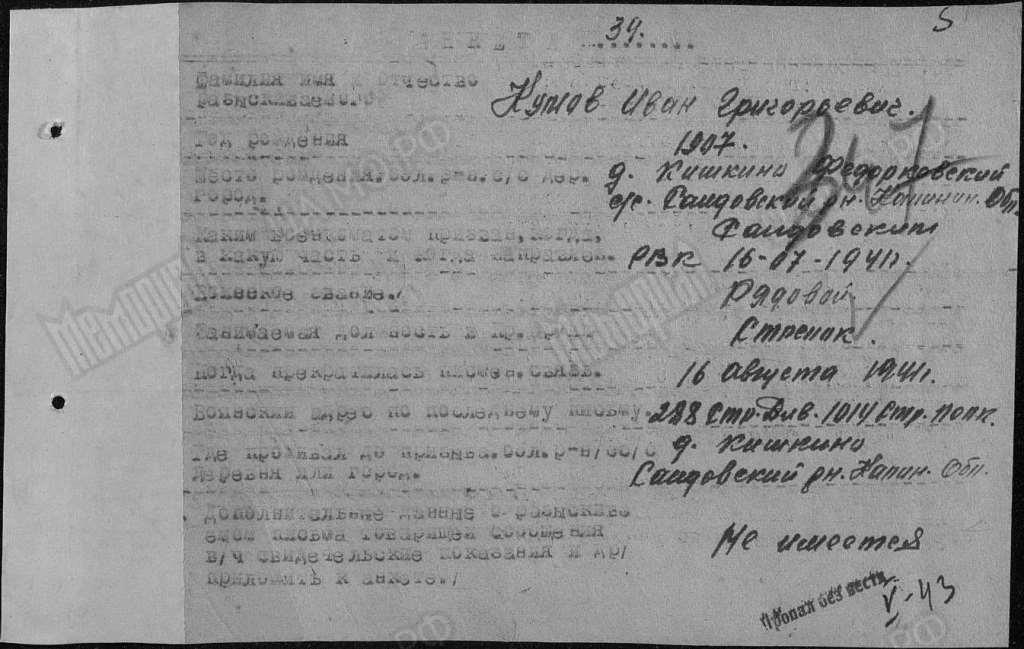 АНКЕТА 34. 5
Фамилия имя и отчество
разыскиваемого Иван Григорьевич.
Год рождения 1907.
Место рождения.обл.р-н.с/с дер. д. Кишкино Федорковский
город. с/с. Сандовский рн. Калинин. Обл.
Каким военкоматом призван,когда, Сандовским
в какую часть и когда направлен. РВК 16-07-1941г.
Воинское звание./ Рядовой
Занимаемая должность в Стрелок.
Когда прекратилась письмен.связь. 16 Августа 1941г.
Воинский адрес по последнему письму. 288 Стр. Див. 1014 Стр. Полк.
Где проживал до призыва.обл.р-н/сс/с д. Кишкино
деревня или город. Сандовский рн. Калин. Обл.
Дополнительные данные о разыскива
емом письма товарищей сообщения
в/ч свидетельские показания и др/ Не имеется
приложить к анкете./
Пропал без вести V-43
347
Мемориал